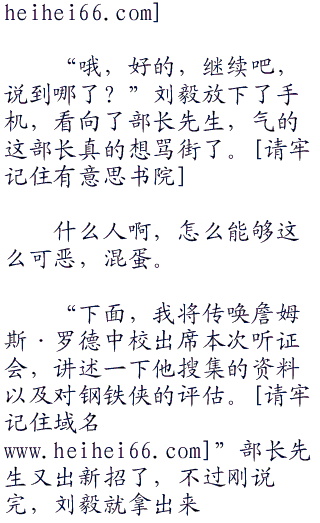 heihei66.com]
“哦，好的，继续吧，
说到哪了？”刘毅放下了手
机，看向了部长先生，气的
这部长真的想骂街了。[请牢
记住有意思书院]
什么人啊，怎么能够这
么可恶，混蛋。
“下面，我将传唤詹姆
斯·罗德中校出席本次听证
会，讲述一下他搜集的资料
以及对钢铁侠的评估。[请牢
记住域名
www.heihei66.com]”部长先
生又出新招了，不过刚说
完，刘毅就拿出来